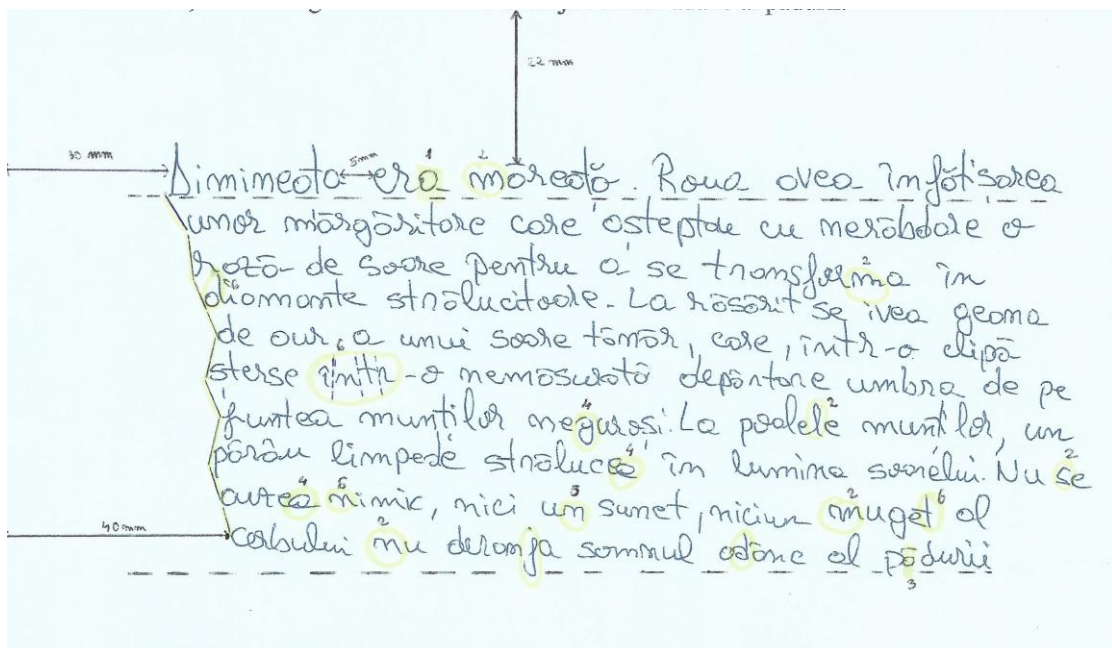 22 mm
30 mm
5mm 1 2
Dimineata era măreață. Roua avea înfățisarea
unor mărgăritare care așteptau cu nerăbdare o
rază de soare pentru a se transforma în
2
diamante strălucitoare. La răsărit se ivea geana
de aur, a unui soare tânăr, care, într-o clipă
6 6
șterse într-o nemăsurată depărtare umbra de pe
4 2
fruntea munților neguroși. La poalele munților, un
4 2
pârâu limpede strălucea în lumina soarelui. Nu se
4 5 5 2 6
auzea nimic, nici un sunet, niciun muget al
40 mm 2
cerbului nu deranja somnul adânc al pădurii
3